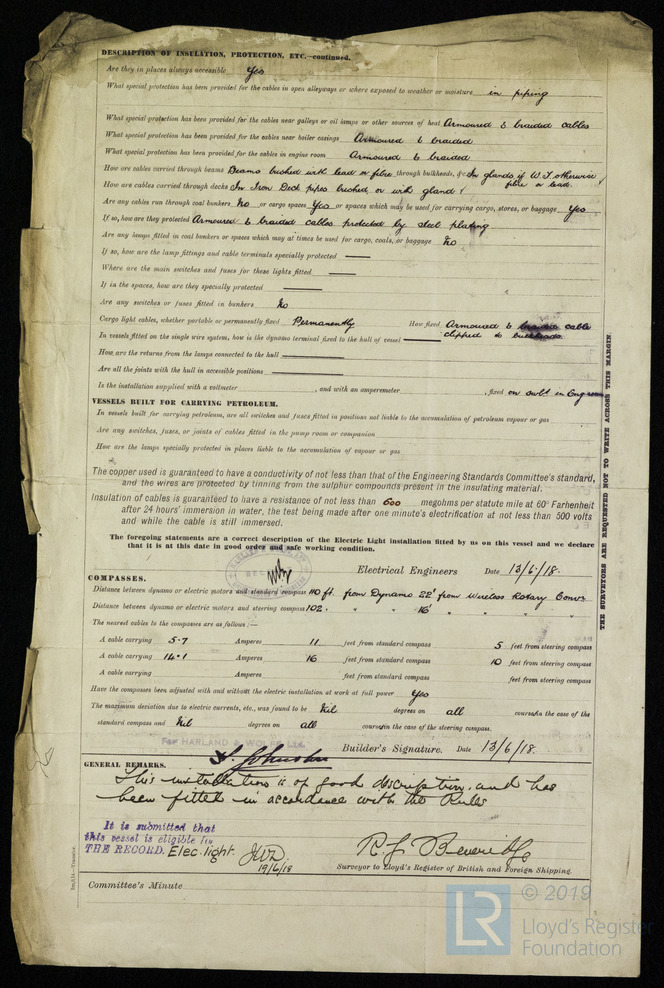 DESCRIPTION OF INSULATION, PROTECTION, ETC.—continued.
Are they in places always accessible Yes
What special protection has been provided for the cables in open alleyways or where exposed to weather or moisture in piping
What special protection has been provided for the cables near galleys or oil lamps or other sources of heat Armoured & braided cables
What special protection has been provided for the cables near boiler casings Armoured & braided
What special protection has been provided for the cables in engine room Armoured & braided
How are cables carried through beams Beams bushed with lead or fibre through bulkheads, &c. In glands if W.T. otherwise
How are cables carried through decks In Iron Deck pipes bushed or with gland fibre or lead.
Are any cables run through coal bunkers No or cargo spaces Yes or spaces which may be used for carrying cargo, stores, or baggage Yes
If so, how are they protected Armoured & braided cables protected by steel plating
Are any lamps fitted in coal bunkers or spaces which may at times be used for cargo, coals, or baggage No
If so, how are the lamp fittings and cable terminals specially protected —
Where are the main switches and fuses for these lights fitted —
If in the spaces, how are they specially protected —
Are any switches or fuses fitted in bunkers No
Cargo light cables, whether portable or permanently fixed Permanently How fixed Armoured & braided cable
In vessels fitted on the single wire system, how is the dynamo terminal fixed to the hull of vessel — clipped to bulkheads.
How are the returns from the lamps connected to the hull —
Are all the joints with the hull in accessible positions —
Is the installation supplied with a voltmeter , and with an amperemeter , fixed on swbd in Eng room
VESSELS BUILT FOR CARRYING PETROLEUM.
In vessels built for carrying petroleum, are all switches and fuses fitted in positions not liable to the accumulation of petroleum vapour or gas
Are any switches, fuses, or joints of cables fitted in the pump room or companion
How are the lamps specially protected in places liable to the accumulation of vapour or gas
The copper used is guaranteed to have a conductivity of not less than that of the Engineering Standards Committee's standard,
and the wires are protected by tinning from the sulphur compounds present in the insulating material.
Insulation of cables is guaranteed to have a resistance of not less than 600 megohms per statute mile at 60° Farhenheit
after 24 hours' immersion in water, the test being made after one minute's electrification at not less than 500 volts
and while the cable is still immersed.
The foregoing statements are a correct description of the Electric Light installation fitted by us on this vessel and we declare
that it is at this date in good order and safe working condition.
Electrical Engineers Date 13/6/18.
COMPASSES.
Distance between dynamo or electric motors and standard compass 110 ft. from Dynamo 22' from Wireless Rotary Conv.
Distance between dynamo or electric motors and steering compass 102. " " 16' " " "
The nearest cables to the compasses are as follows:—
A cable carrying 5.7 Amperes 11 feet from standard compass 5 feet from steering compass
A cable carrying 14.1 Amperes 16 feet from standard compass 10 feet from steering compass
A cable carrying Amperes feet from standard compass feet from steering compass
Have the compasses been adjusted with and without the electric installation at work at full power Yes
The maximum deviation due to electric currents, etc., was found to be Nil degrees on all course in the case of the
standard compass and Nil degrees on all course in the case of the steering compass.
For HARLAND & WOLFF LTD.
Builder's Signature. Date 13/6/18.
GENERAL REMARKS.
This installation is of good discription, and has
been fitted in accordance with the Rules
It is submitted that
this vessel is eligible for
THE RECORD. Elec. light. JWD
19/6/18
R. J. Beveridge
Surveyor to Lloyd's Register of British and Foreign Shipping.
Committee's Minute
THE SURVEYORS ARE REQUESTED NOT TO WRITE ACROSS THIS MARGIN.
LR
© 2019
Lloyd's Register
Foundation